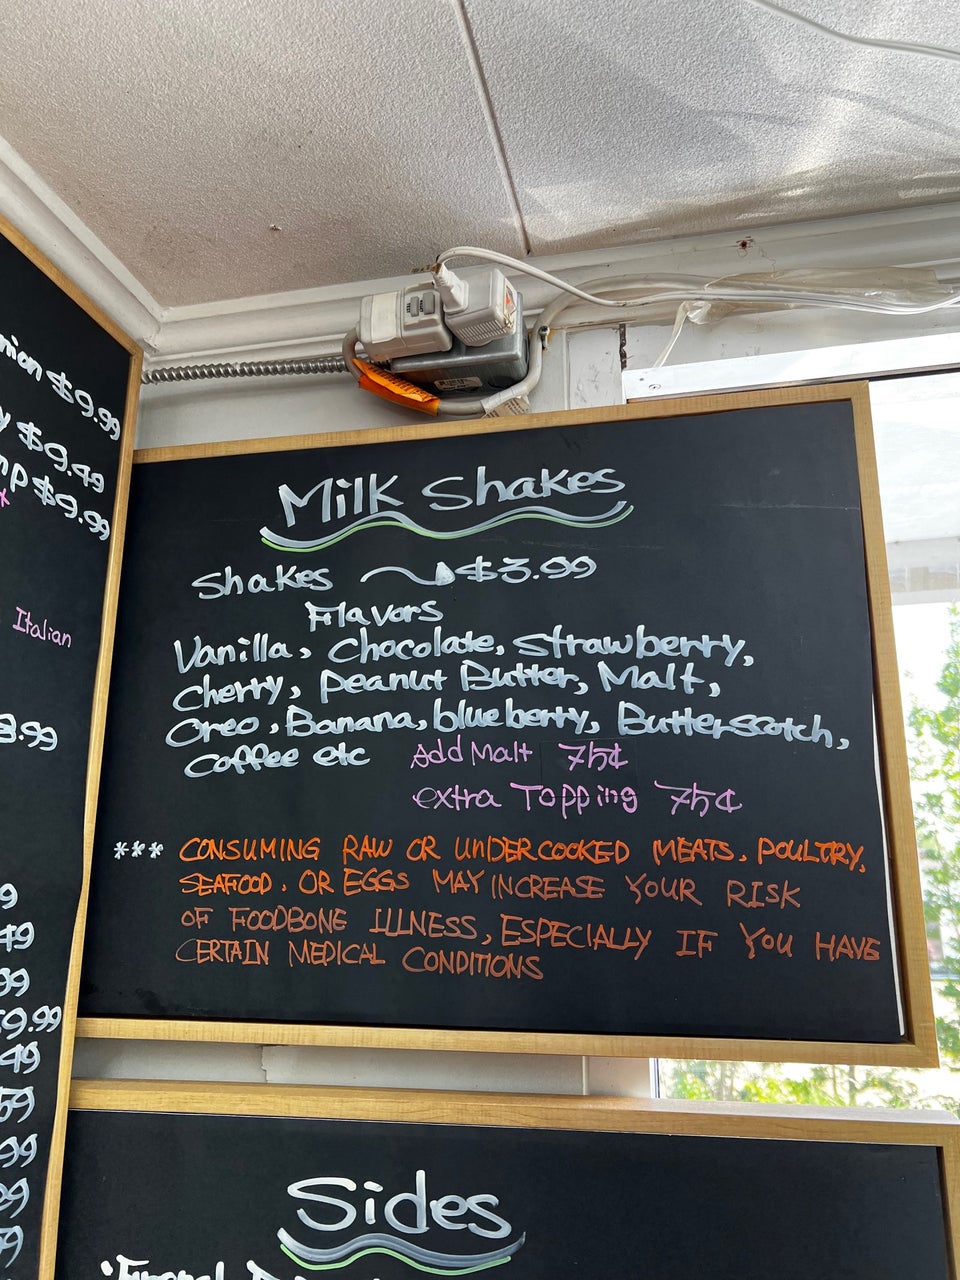 $9.99
$9.49
$9.99
Italian
3.99
9
49
99
$9.99
49
99
Milk Shakes
Shakes $3.99
Flavors
Vanilla, Chocolate, Strawberry,
Cherry, Peanut Butter, Malt,
Oreo, Banana, blueberry, Butterscotch,
Coffee etc
Add Malt 75¢
extra Topping 75¢
*** CONSUMING RAW OR UNDERCOOKED MEATS, POULTRY,
SEAFOOD, OR EGGS MAY INCREASE YOUR RISK
OF FOODBONE ILLNESS, ESPECIALLY IF YOU HAVE
CERTAIN MEDICAL CONDITIONS
Sides